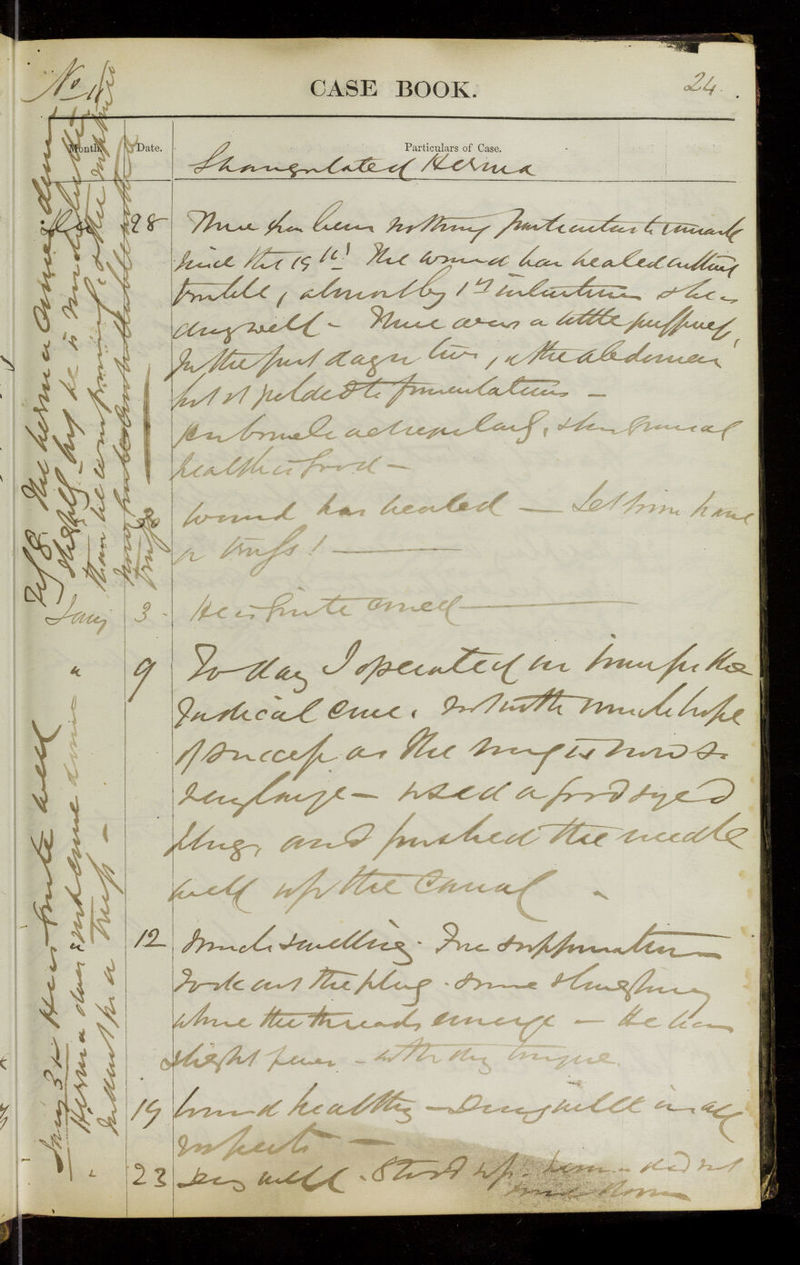 No
CASE BOOK.
24.
Month Date. Particulars of Case.
Strangulated Hernia
28 There has been nothing particular to remark
since the 19th. The wound has healed without
trouble, almost by 1st intention & he is
doing well - There was a little puffiness,
for the first day or two, of the abdomen
but it yielded to fomentations -
bowels act regularly, & his general
health is good -
Wound has healed - Let him have
a truss! -
Jany 3 - He is quite cured -
" 9 To day I operated on him for the
radical cure. not with much hope
of success as the ring is now so
very large - used a good sized
plug, and pushed the needle
well up the canal -
12 Much swelling. Free suppuration
Took out the plug. some sloughing
where the threads emerge - He has
slight fever - with dry tongue
19 Wound healthy - Doing well in all
respects -
" 23 Very well. Stood up. did not
come down
Jany 31 He is quite well
Hernia does not come down
a truss -
Feb 8. The hernia came down
slightly - he is
than he was
truss